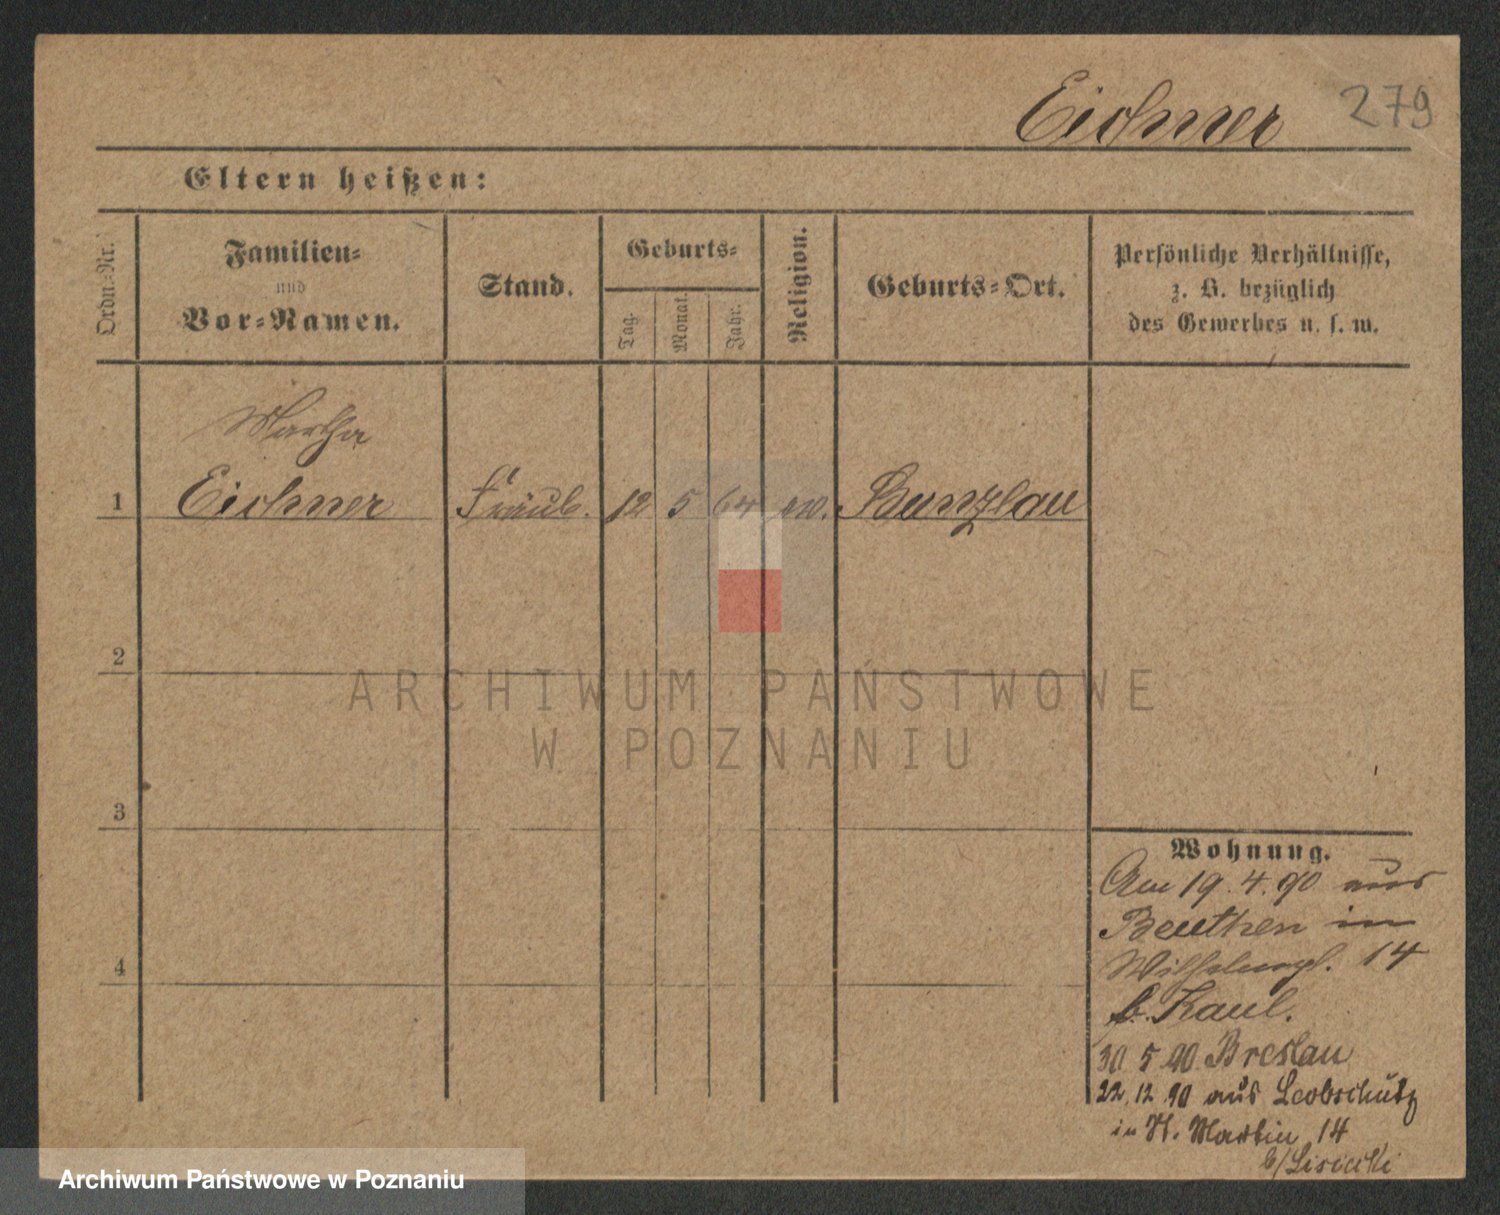 Eichner 279
Eltern heißen:
Ordn.-Nr.
Familien-
und
Vor-Namen.
Stand.
Geburts-
Tag.
Monat.
Jahr.
Religion.
Geburts-Ort.
Persönliche Verhältnisse,
z. B. bezüglich
des Gewerbes u. s. w.
Martha
1 Eichner Fräul. 12 5 64 ev. Bunzlau
2
3
4
ARCHIWUM PAŃSTWOWE
W POZNANIU
Wohnung.
Am 19.4.90 aus
Beuthen in
Wilhelmspl. 14
b. Kaul.
30 5 90 Breslau
22.12 90 aus Leobschütz
in St. Martin 14
b/
Archiwum Państwowe w Poznaniu